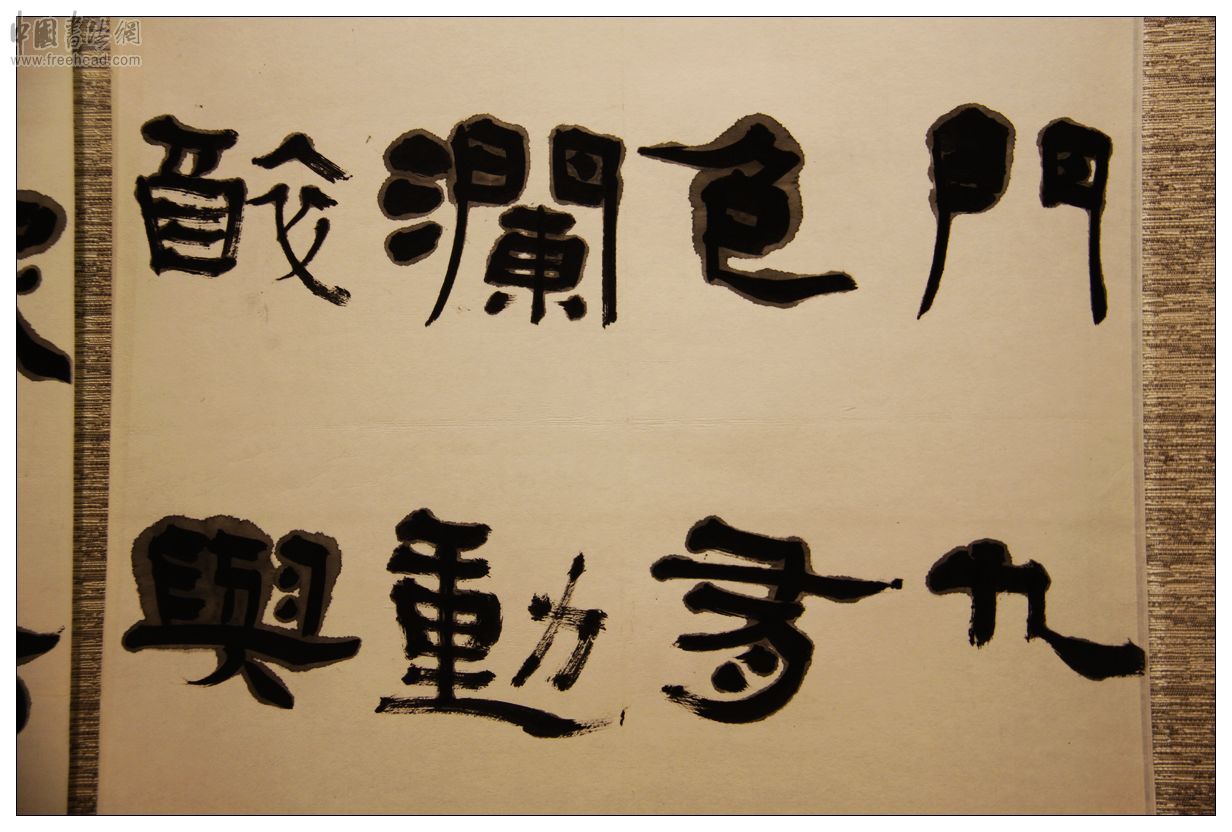 中國書法網
www.freehead.com
門九
色
瀾動
與